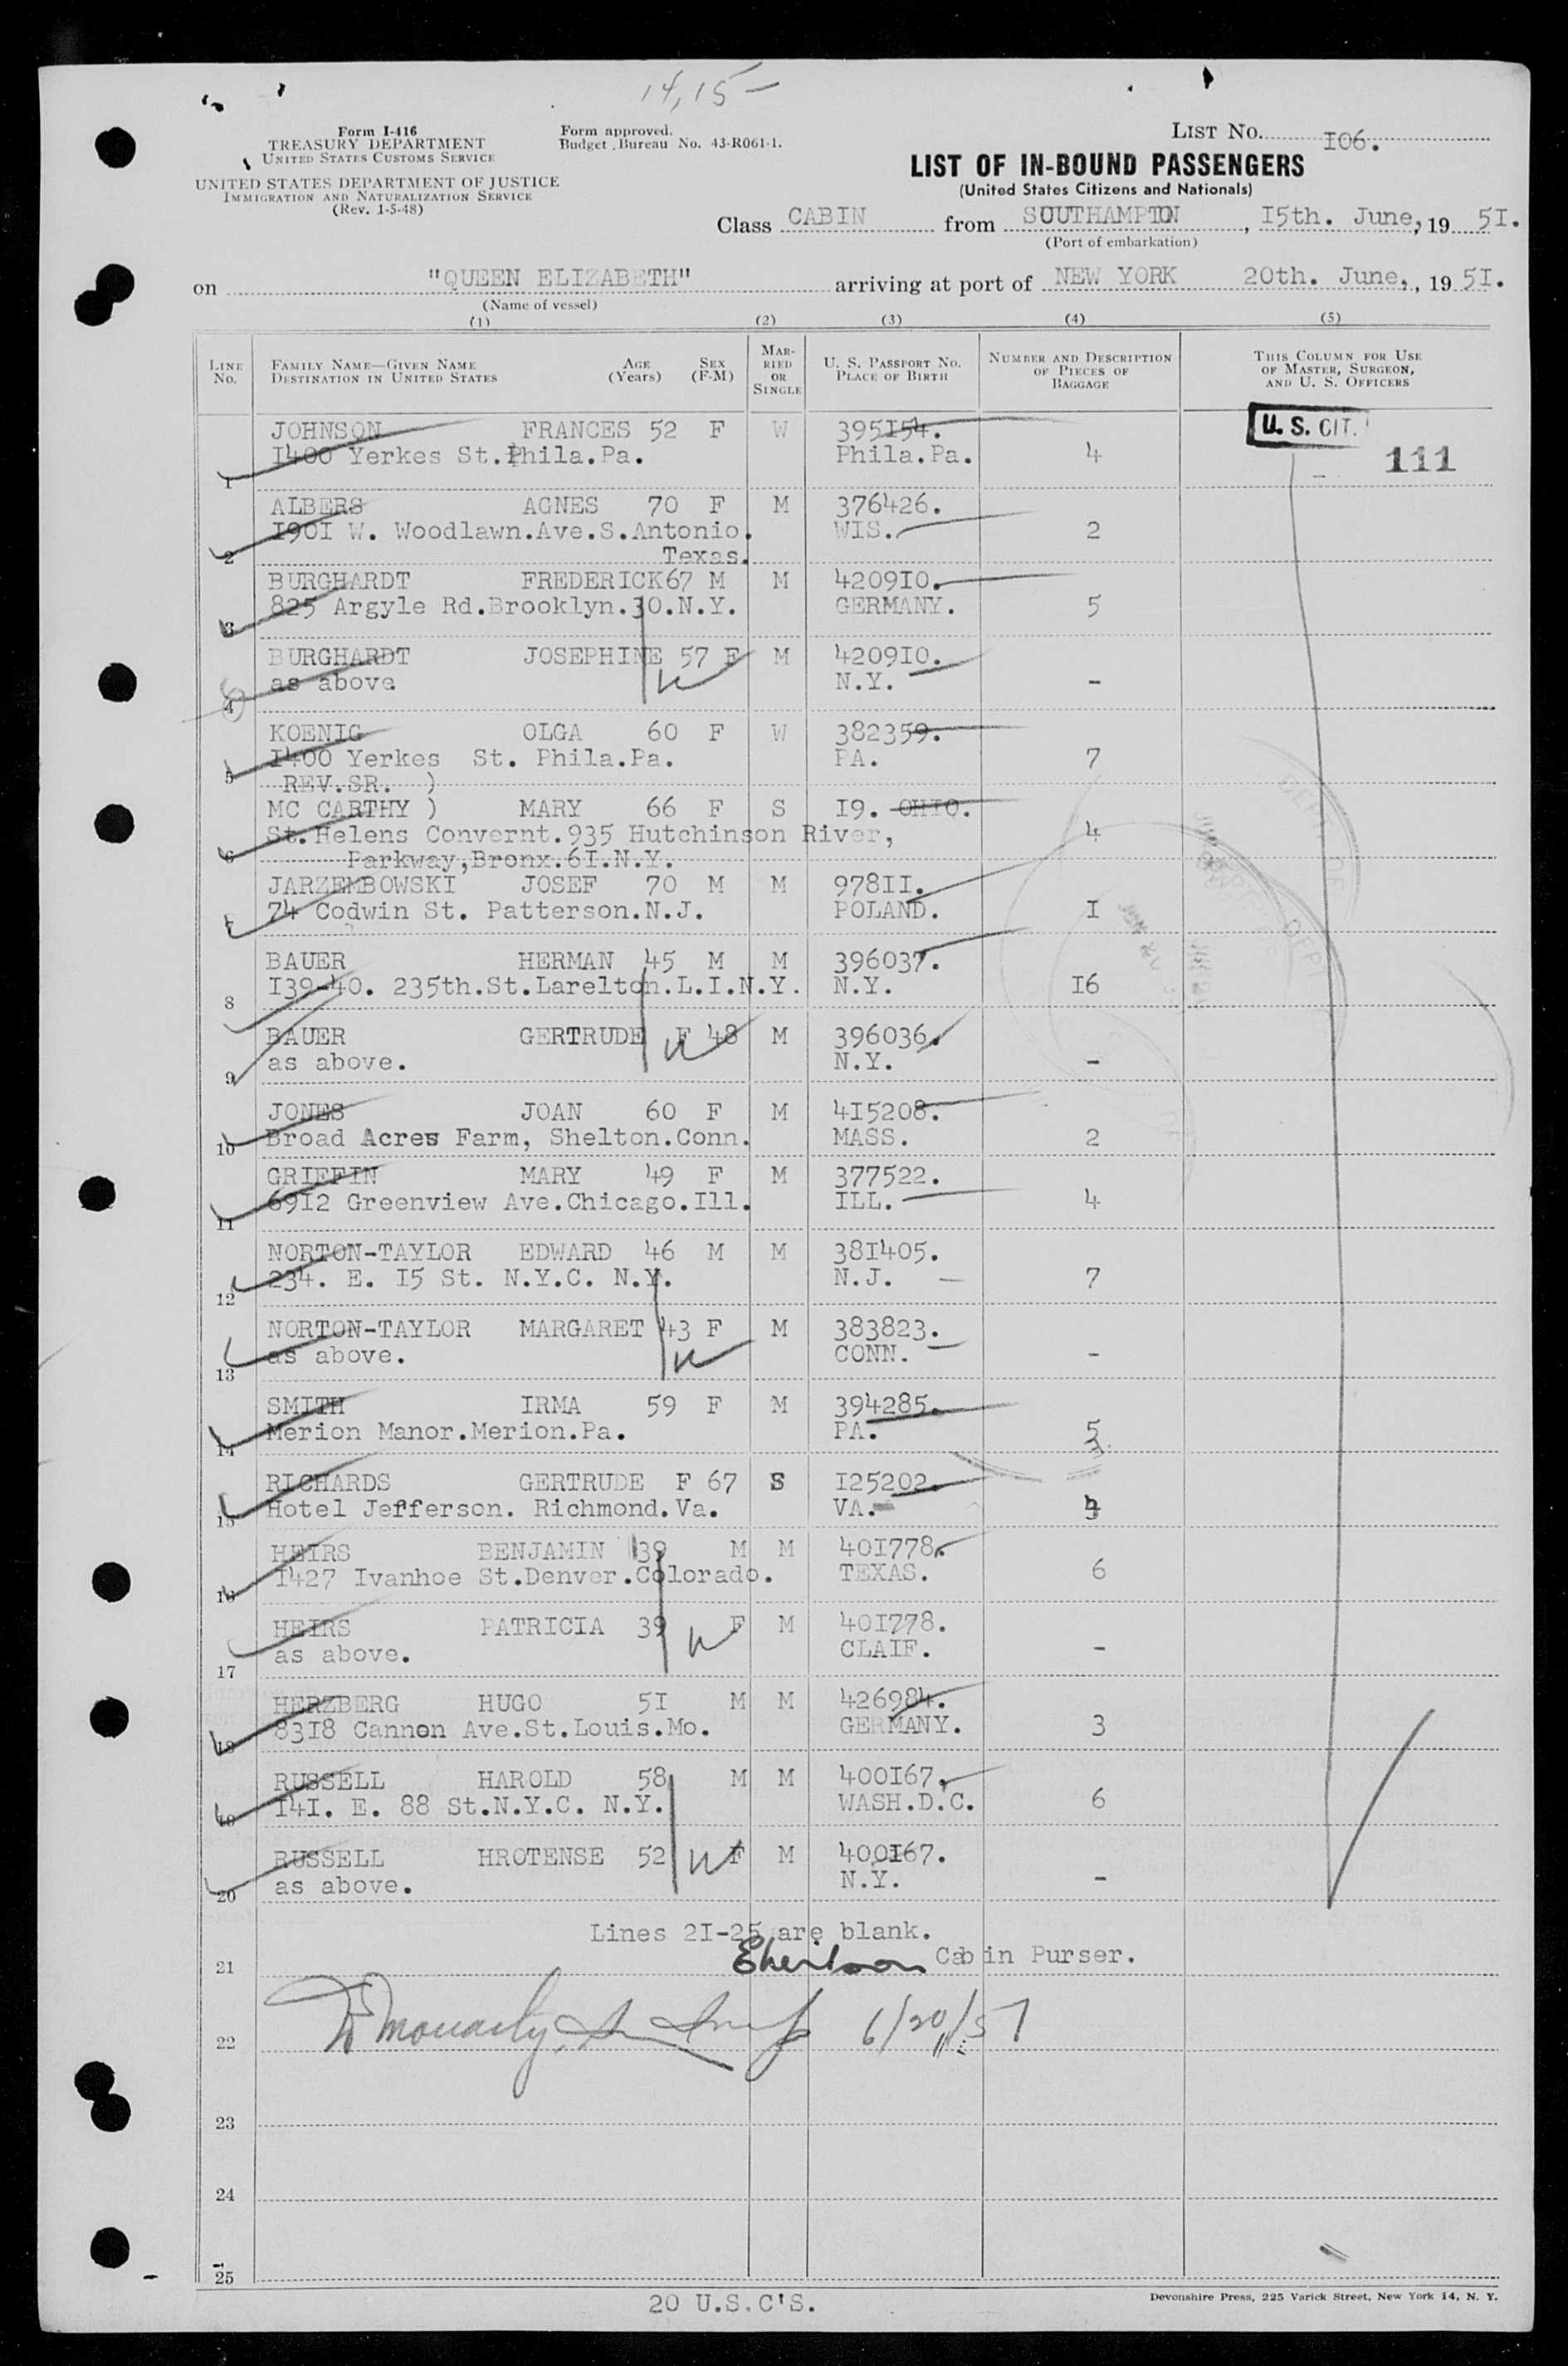 14,15 —
Form I-416
TREASURY DEPARTMENT
UNITED STATES CUSTOMS SERVICE
UNITED STATES DEPARTMENT OF JUSTICE
IMMIGRATION AND NATURALIZATION SERVICE
(Rev. 1-5-48)
Form approved.
Budget Bureau No. 43-R061-1.
LIST NO. I06.
LIST OF IN-BOUND PASSENGERS
(United States Citizens and Nationals)
Class CABIN from SOUTHAMPTON, I5th. June, 19 5I.
(Port of embarkation)
on "QUEEN ELIZABETH" arriving at port of NEW YORK 20th. June, , 19 5I.
(Name of vessel)
(1) (2) (3) (4) (5)
LINE NO. FAMILY NAME—GIVEN NAME DESTINATION IN UNITED STATES AGE (Years) SEX (F-M) MARRIED OR SINGLE U. S. PASSPORT NO. PLACE OF BIRTH NUMBER AND DESCRIPTION OF PIECES OF BAGGAGE THIS COLUMN FOR USE OF MASTER, SURGEON, AND U. S. OFFICERS
JOHNSON FRANCES 52 F W 395I54. U. S. CIT.
1 I400 Yerkes St.Phila.Pa. Phila.Pa. 4 111
ALBERS AGNES 70 F M 376426.
2 I90I W. Woodlawn.Ave.S.Antonio. WIS. 2
Texas.
BURGHARDT FREDERICK67 M M 4209I0.
3 825 Argyle Rd.Brooklyn.30.N.Y. GERMANY. 5
BURGHARDT JOSEPHINE 57 F M 4209I0.
4 as above N.Y. -
KOENIG OLGA 60 F W 382359.
5 I400 Yerkes St. Phila.Pa. PA. 7
REV.SR. )
MC CARTHY ) MARY 66 F S I9. OHIO.
6 St.Helens Convernt.935 Hutchinson River, 4
Parkway,Bronx.6I.N.Y.
JARZEMBOWSKI JOSEF 70 M M 978II.
7 74 Codwin St. Patterson.N.J. POLAND. I
BAUER HERMAN 45 M M 396037.
8 I39-40. 235th.St.Larelton.L.I.N.Y. N.Y. I6
BAUER GERTRUDE F 48 M 396036.
9 as above. N.Y. -
JONES JOAN 60 F M 4I5208.
10 Broad Acres Farm, Shelton.Conn. MASS. 2
GRIFFIN MARY 49 F M 377522.
11 69I2 Greenview Ave.Chicago.Ill. ILL. 4
NORTON-TAYLOR EDWARD 46 M M 38I405.
12 234. E. I5 St. N.Y.C. N.Y. N.J. 7
NORTON-TAYLOR MARGARET 43 F M 383823.
13 as above. CONN. -
SMITH IRMA 59 F M 394285.
14 Merion Manor.Merion.Pa. PA. 5
RICHARDS GERTRUDE F 67 S I25202.
15 Hotel Jefferson. Richmond.Va. VA.
HEIRS BENJAMIN 39 M M 40I778.
16 I427 Ivanhoe St.Denver.Colorado. TEXAS. 6
HEIRS PATRICIA 39 F M 40I778.
17 as above. CLAIF. -
HERZBERG HUGO 5I M M 426984.
18 83I8 Cannon Ave.St.Louis.Mo. GERMANY. 3
RUSSELL HAROLD 58 M M 400I67.
19 I4I. E. 88 St.N.Y.C. N.Y. WASH.D.C. 6
RUSSELL HROTENSE 52 F M 400I67.
20 as above. N.Y. -
Lines 2I-25 are blank.
21 Cabin Purser.
22 6/20/51
23
24
25
20 U.S.C'S.
Devonshire Press, 225 Varick Street, New York 14, N. Y.